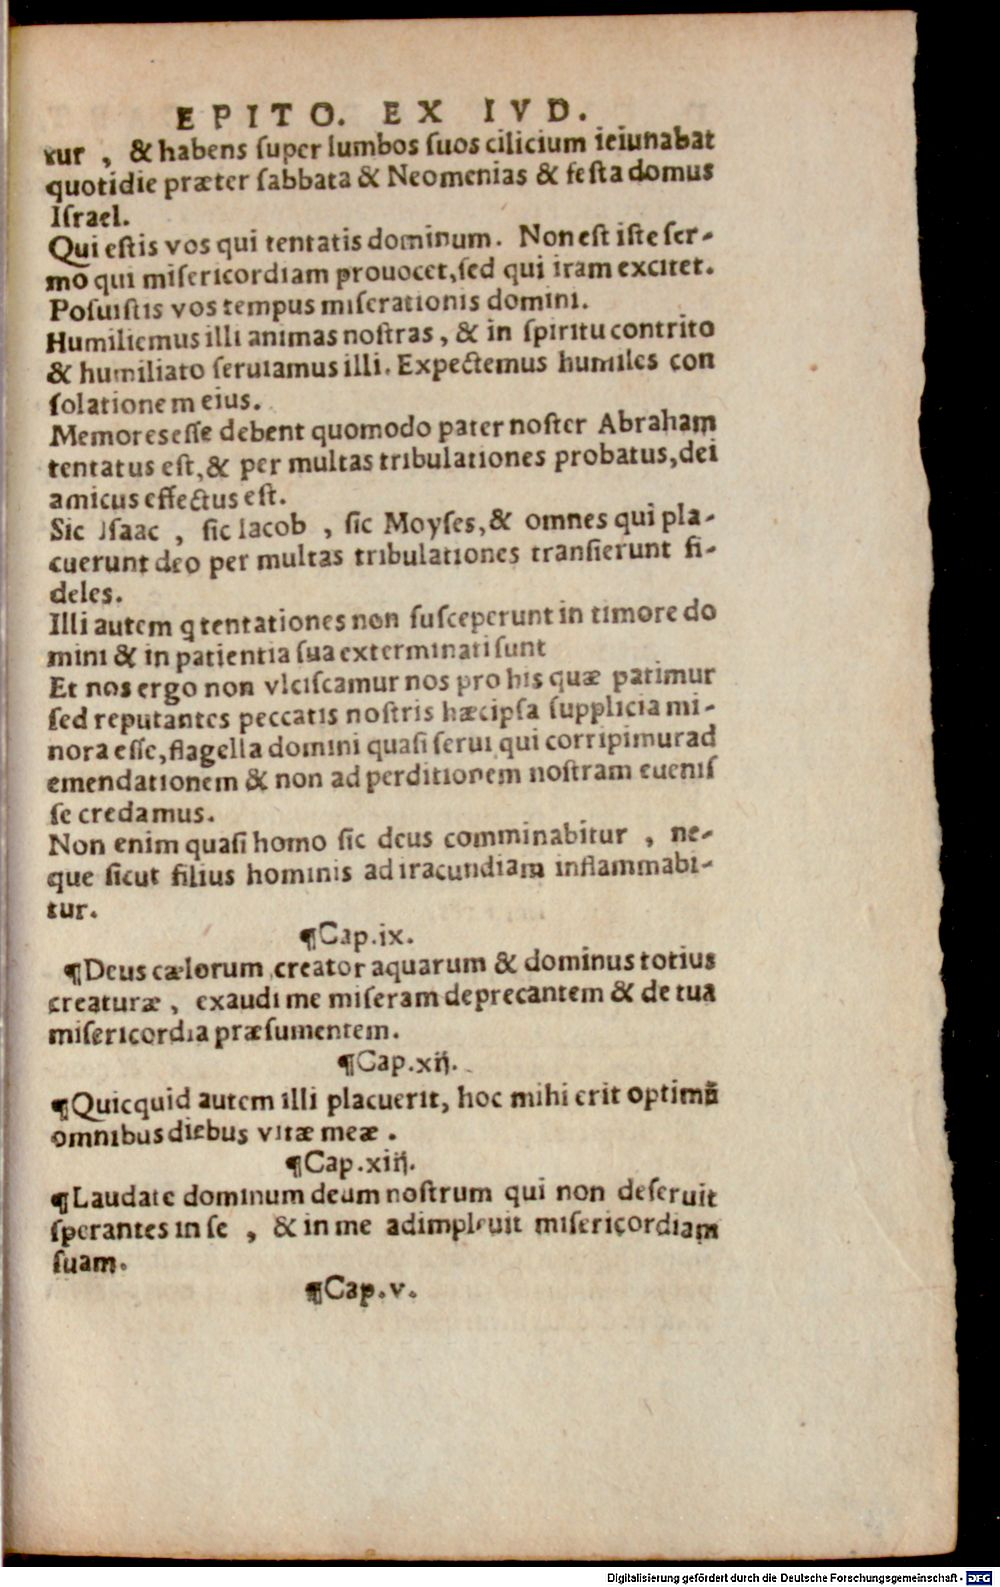 EPITO. EX IVD.
tur , & habens ſuper lumbos ſuos cilicium ieiunabat
quotidie præter ſabbata & Neomenias & feſta domus
Iſrael.
Qui eſtis vos qui tentatis dominum. Non eſt iſte ſer-
mo qui miſericordiam prouocet,ſed qui iram excitet.
Poſuiſtis vos tempus miſerationis domini.
Humiliemus illi animas noſtras , & in ſpiritu contrito
& humiliato ſeruiamus illi. Expectemus humiles con
ſolationem eius.
Memores eſſe debent quomodo pater noſter Abraham
tentatus eſt,& per multas tribulationes probatus,dei
amicus effectus eſt.
Sic Iſaac , ſic Iacob , ſic Moyſes,& omnes qui pla-
cuerunt deo per multas tribulationes tranſierunt fi-
deles.
Illi autem q tentationes non ſuſceperunt in timore do
mini & in patientia ſua exterminati ſunt
Et nos ergo non vlciſcamur nos pro his quæ patimur
ſed reputantes peccatis noſtris hæc ipſa ſupplicia mi-
nora eſſe,flagella domini quaſi ſerui qui corripimur ad
emendationem & non ad perditionem noſtram eueniſ
ſe credamus.
Non enim quaſi homo ſic deus comminabitur , ne-
que ſicut filius hominis ad iracundiam inflammabi-
tur.
¶Cap.ix.
¶Deus cælorum creator aquarum & dominus totius
creaturæ , exaudi me miſeram deprecantem & de tua
miſericordia præſumentem.
¶Cap.xij.
¶Quicquid autem illi placuerit, hoc mihi erit optimũ
omnibus diebus vitæ meæ .
¶Cap.xiij.
¶Laudate dominum deum noſtrum qui non deſeruit
ſperantes in ſe , & in me adimpleuit miſericordiam
ſuam.
¶Cap.v.
Digitalisierung gefördert durch die Deutsche Forschungsgemeinschaft - DFG